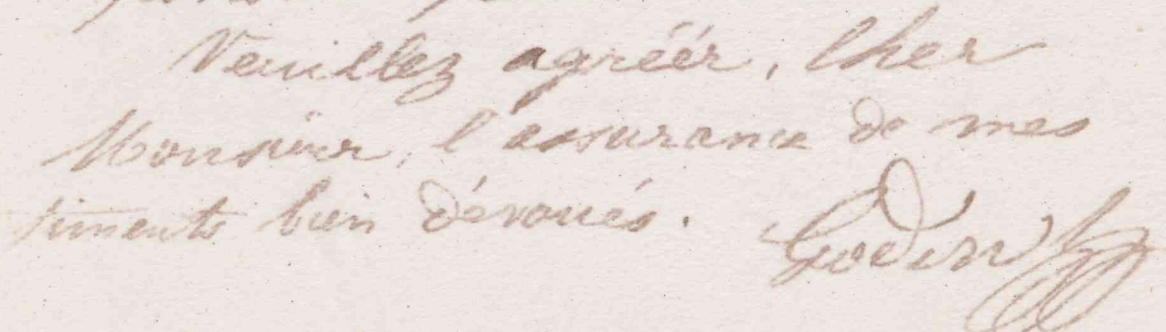 Veuillez agréér, Cher
Monsieur, l'assurance de mes
timents bien dévoués.
Godin